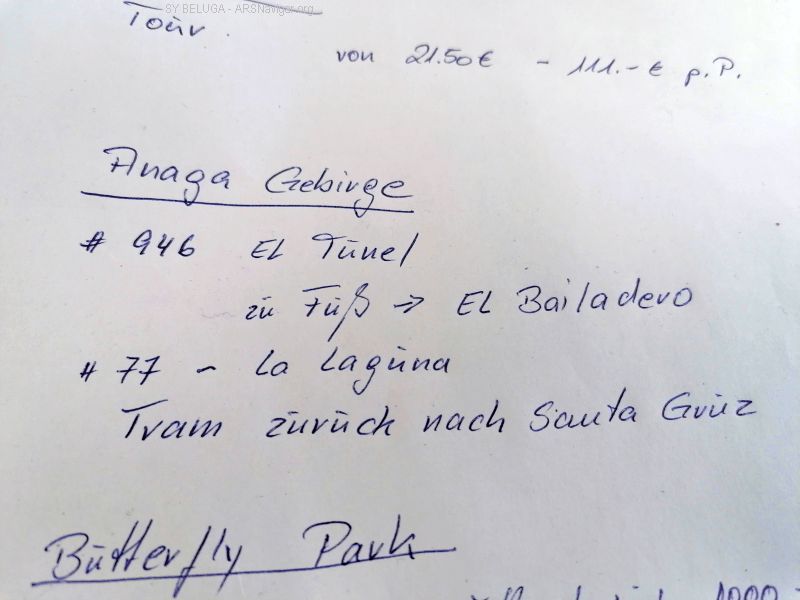 SY BELUGA - ARSNavigor.org
Tour.
von 21.50€ - 111.-€ p.P.
Anaga Gebirge
# 946 EL Tunel
zu Fuß → EL Bailadero
# 77 - La Laguna
Tram zurück nach Santa Gruz
Butterfly Park
1000